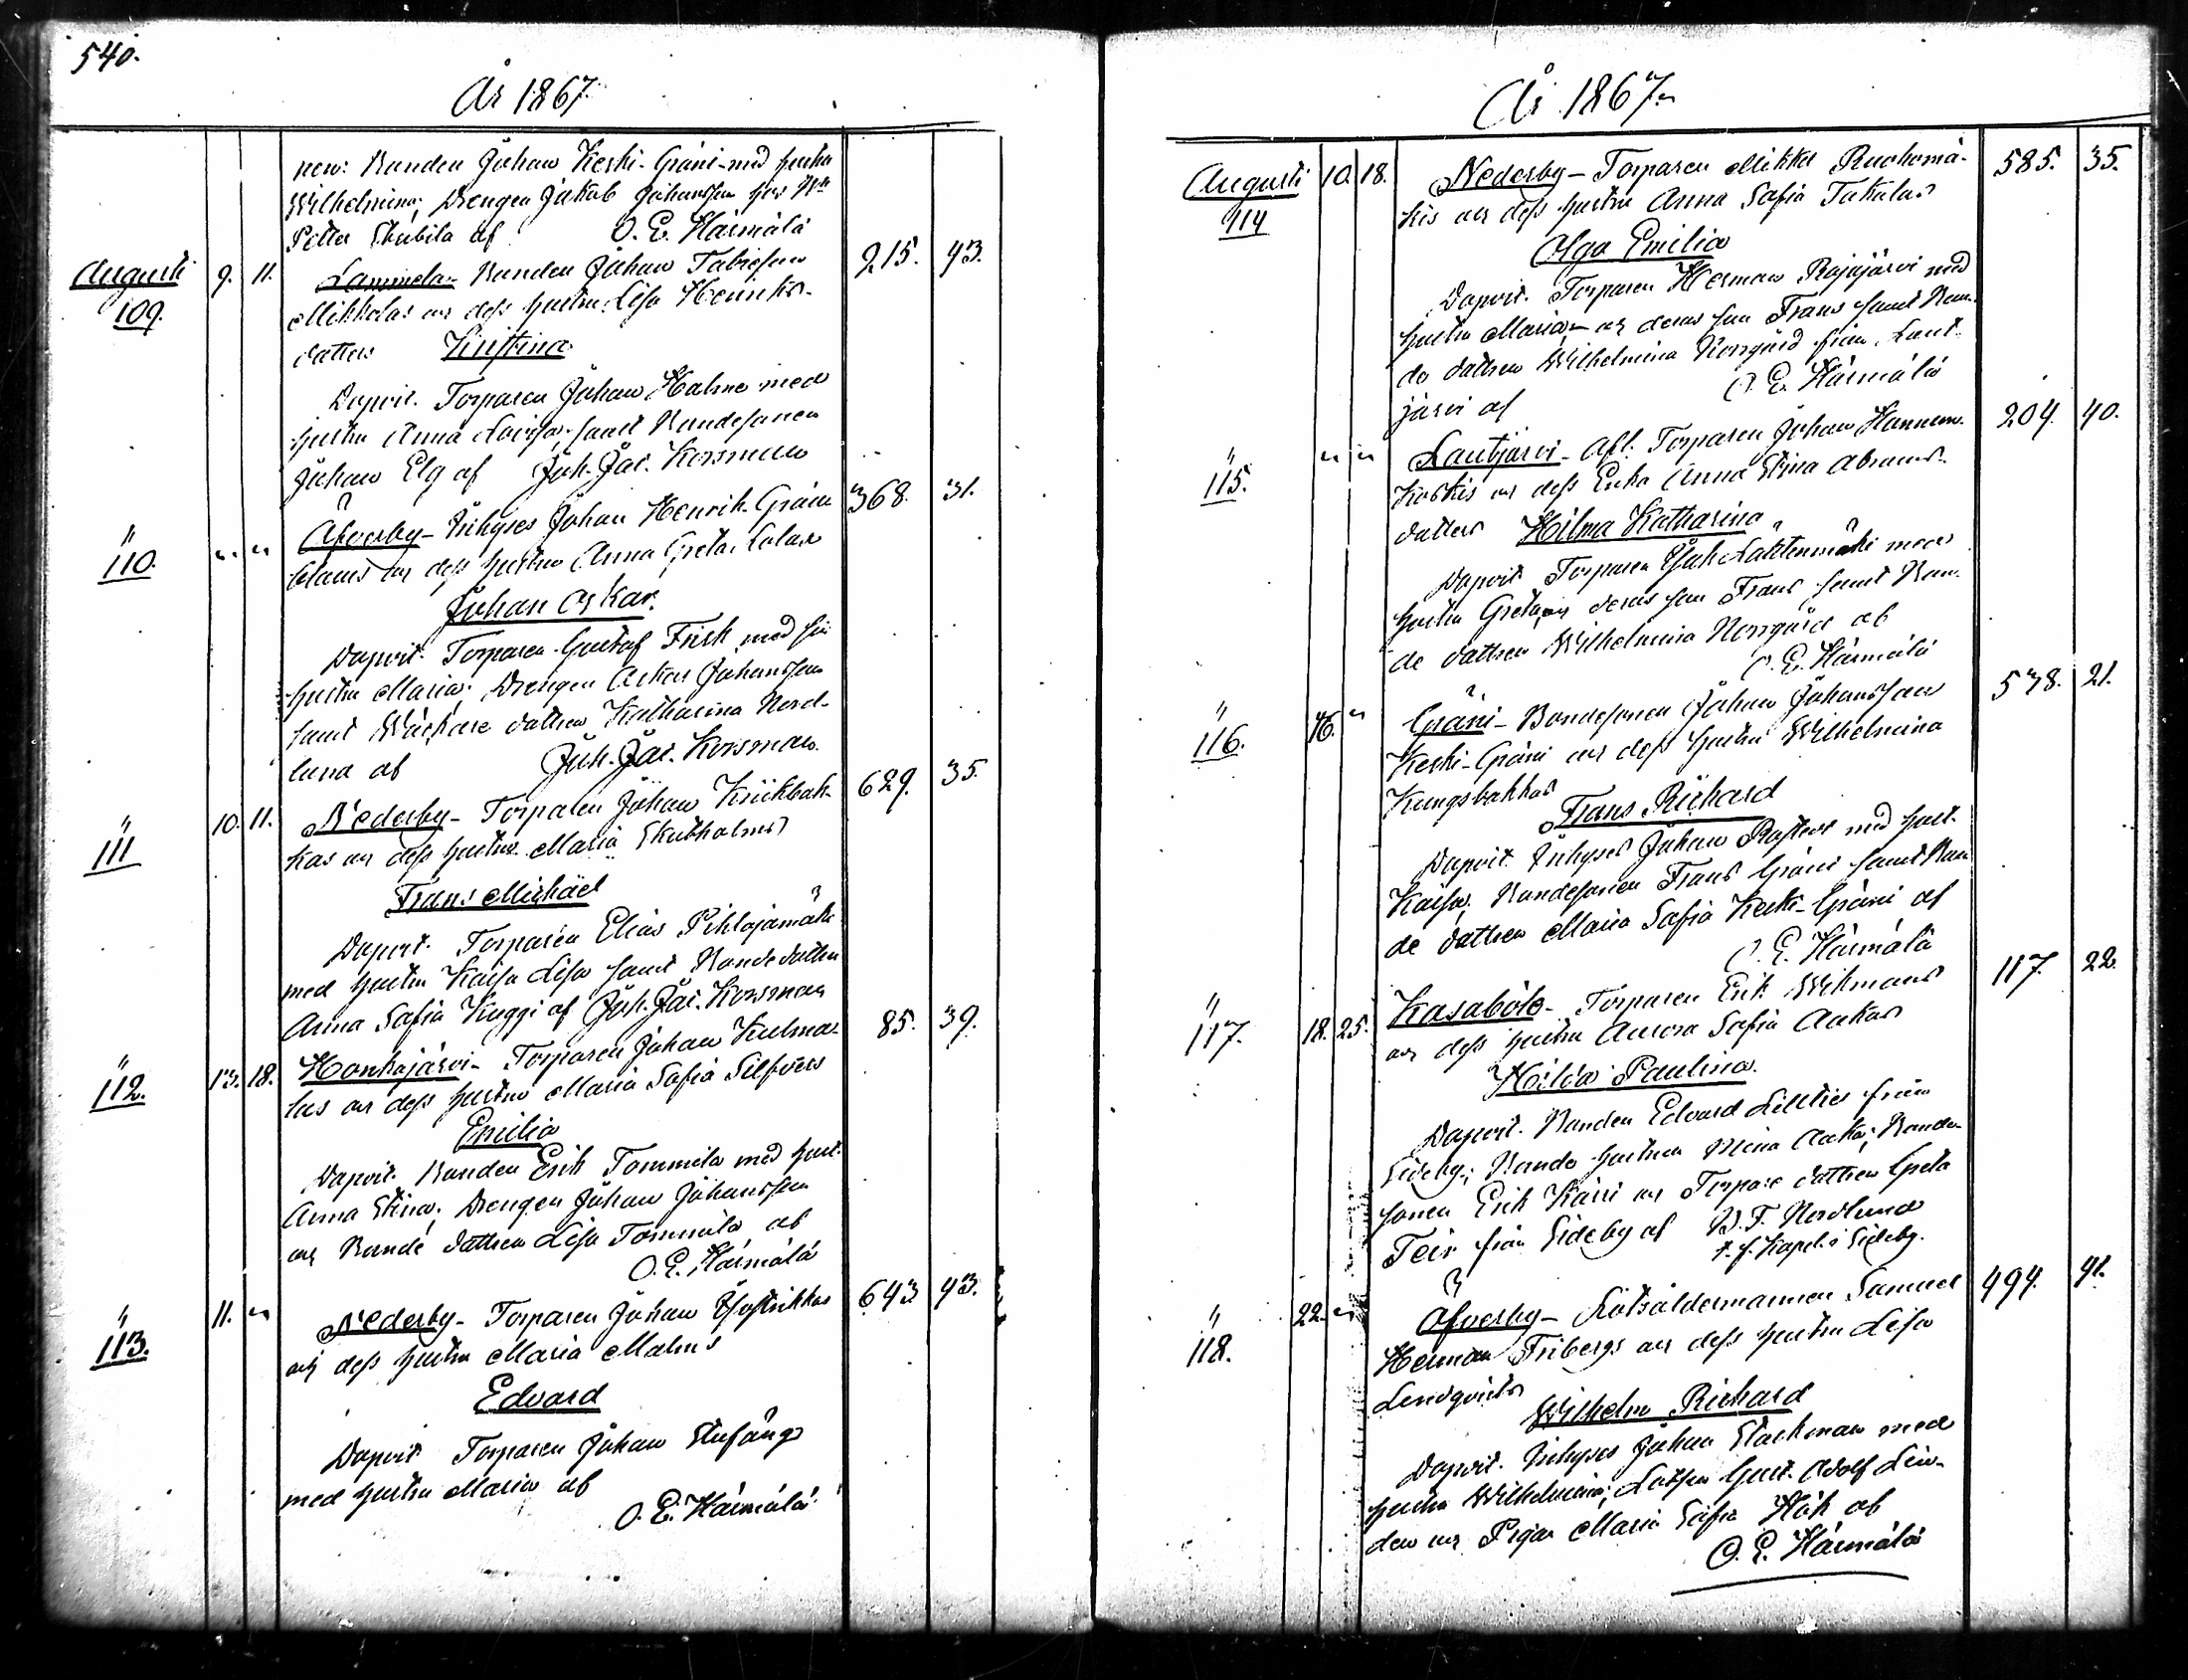 540.
År 1867
nen: Bonden Johan Keski-Gräni med hustru
Wilhelmina; Drengen Jakob Johansson hos Bn
Petter Skubila af O. E. Härmälä
Augusti 109. 9. 11. Lammela- Bonden Johan Tobiesson 215. 43.
Mikkolas och dess hustru Lisa Henriks-
dotters Kristina
Dopvit. Torparen Johan Halme med
hustru Anna Lovisa; samt Bondesonen
Johan Elg af Joh. Jac. Korsman
" 110. " " Åfverby- Inhyses Johan Henrik Grän 368. 31.
blaus och dess hustru Anna Greta
Johan Oskar.
Dopvit. Torparen Gustaf Frisk med sin
hustru Maria; Drengen Oskar Johansson
samt dottren Katharina Nord-
lund af Joh. Jac. Korsman.
" 111 10. 11. Nederby- Torparen Johan Krickbak- 629. 35.
kas och dess hustru Maria Skutholms
Frans Michäel
Dopvit. Torparen Elias Pihlajamäki
med hustru Kaisa Lisa samt Bondedottren
Anna Sofia Kuggi af Joh. Jac. Korsman
" 112. 13. 18. Honkajärvi- Torparen Johan Kulma- 85. 39.
las och dess hustru Maria Sofia Silfvers
Emilia
Dopvit. Bonden Erik Tommila med hust.
Anna Stina; Drengen Johan Johansson
och Bonde dottren Lisa Tommila af
O. E. Härmälä
" 113. 11. " Nederby- Torparen Johan 643. 43.
och dess hustru Maria Malms
Edvard
Dopvit. Torparen Johan Stufängs
med hustru Maria af
O. E. Härmälä
År 1867.
Augusti 114 10. 18. Nederby- Torparen Mikkel Ruohomä- 585. 35.
kis och dess hustru Anna Sofia Takalas
Olga Emilia
Dopvit. Torparen Herman Rajajärvi med
hustru Maria, och deras son Frans samt Bon-
de dottren Wilhelmina Norrgård från Laut-
järvi af O. E. Härmälä
" 115. " " Lautjärvi- Afl. Torparen Johan Hannun- 204. 40.
koskis och dess Enka Anna Stina Abrams-
dotters Hilma Katharina
Dopvit. Torparen Joh. Lähtenmäki med
hustru Greta, och deras son Frans samt Bon-
de dottren Wilhelmina Norrgård af
O. E. Härmälä
" 116. 16. " Gräni- Bondesonen Johan Johansson 538. 21.
Keski-Gräni och dess hustru Wilhelmina
Kungsbakkas
Frans Richard
Dopvit. Inhyses Johan med hust.
Kaisa; Bondesonen Frans Gräni samt Bon-
de dottren Maria Sofia Keski-Gräni af
O. E. Härmälä
" 117. 18. 25. Kasaböle- Torparen Erik Wikmans 117. 22.
och dess hustru Aurora Sofia Aakas
Hilda Paulina.
Dopvit. Bonden Edvard Lillties från
Sideby; Bonde hustrun Mina Aaka; Bonde-
sonen Erik Kärri och Torpare dottren Greta
Teir från Sideby af W. F. Nordlund
t. f. Kapel. i Sideby.
" 118. 22. " Åfverby- Lotsåldermannen Samuel 494. 41.
Herman Fribergs och dess hustru Lisa
Lindqvists
Wilhelm Richard
Dopvit. Inhyses Johan Stackman med
hustru Wilhelmina; Lotsen Gust. Adolf Lin-
den och Pigan Maria Sofia Hök af
O. E. Härmälä